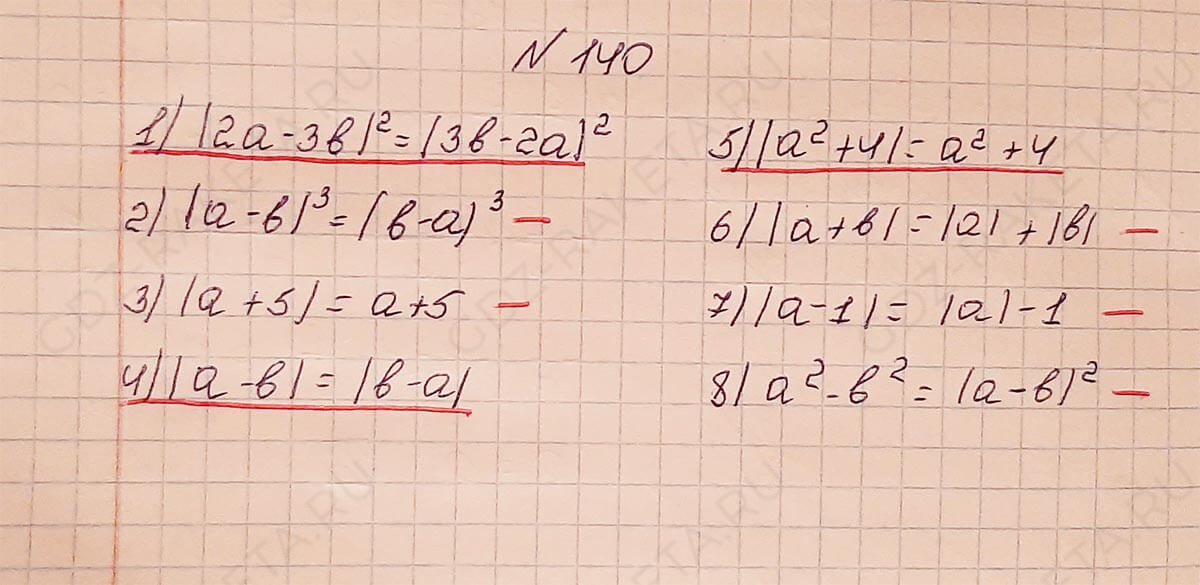 N 140
1) (2a - 3b)² = (3b - 2a)²
2) (a - b)³ = (b - a)³ —
3) |a + 5| = a + 5 —
4) |a - b| = |b - a|
5) |a² + 4| = a² + 4
6) |a + b| = |a| + |b| —
7) |a - 1| = |a| - 1 —
8) a² - b² = (a - b)² —
GDZ-RAKETA.RU